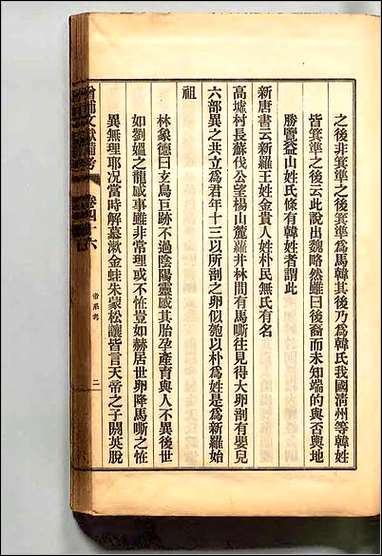 之後非箕準之後箕準爲馬韓其後乃爲韓氏我國清州等韓姓
皆箕準之後云此說出魏略然雖曰後裔而未知端的與否輿地
勝覽益山姓氏條有韓姓者謂此
新唐書云新羅王姓金貴人姓朴民無氏有名
高墟村長蘇伐公望楊山麓蘿井林間有馬嘶往見得大卵剖有嬰兒
六部異之共立爲君年十三以所剖之卵似匏以朴爲姓是爲新羅始
祖
林象德曰玄鳥巨跡不過陰陽靈感其胎孕產育與人不異後世
如劉媼之龍感事雖非常理或不恠豈如赫居世卵降馬嘶之恠
異無理耶况當時解慕漱金蛙朱蒙松讓皆言天帝之子閼英脫
增補文獻備考 卷四十六 帝系考 二